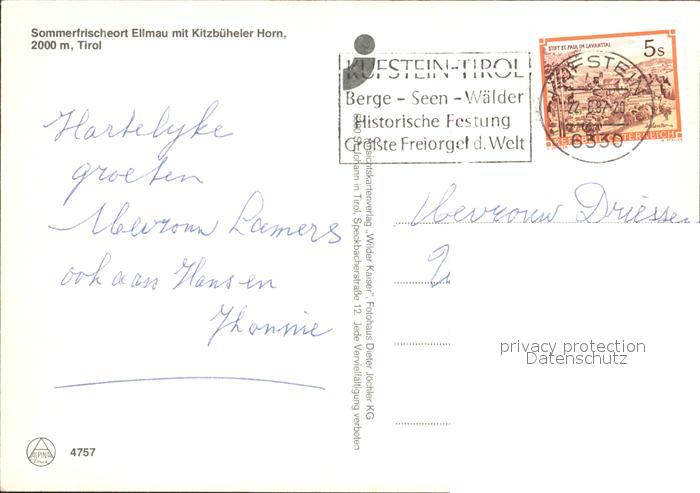 Sommerfrischeort Ellmau mit Kitzbüheler Horn,
2000 m, Tirol
Hartelyke
groeten
Mevrouw Lamers
ook aan Hans en
Jhonnie
ALPINA
4757
Ansichtskartenverlag „Wilder Kaiser", Fotohaus Dieter Jöchler KG
St. Johann in Tirol, Speckbacherstraße 12 Jede Vervielfältigung verboten
KUFSTEIN-TIROL
Berge - Seen - Wälder
Historische Festung
Größte Freiorgel d. Welt
STIFT ST. PAUL IM LAVANTTAL
5s
REPUBLIK ÖSTERREICH
KUFSTEIN
6330
Mevrouw Driessen
privacy protection
Datenschutz